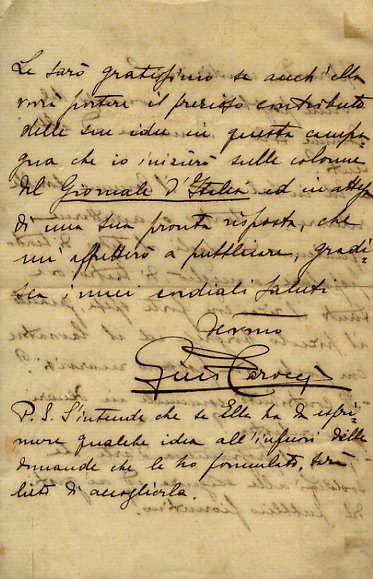 Le sarò gratissimo se anch'Ella
vorrà portare il prezioso contributo
delle sue idee in questa campa=
gna che io inizierò sulle colonne
del Giornale d'Italia ed in attesa
d'una sua pronta risposta, che
mi affretterò a pubblicare, gradi=
sca i miei cordiali saluti
devmo
Carocci
P. S. S'intende che se Ella ha da espri=
mere qualche idea all'infuori delle
domande che le ho formulato, sarò
lieto di accoglierla.